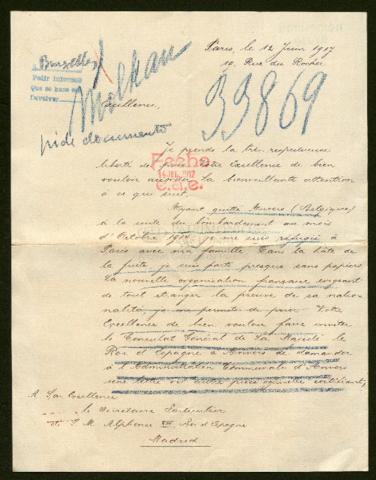 Paris, le 12 Juin 1917
19, Rue du Rocher
Bruxelles
Pedir informe
Que se haga
Devolver
Molkau
33869
pide documento
Excellence,
Je prends la bien respectueuse
liberté de prier Votre Excellence de bien
vouloir accorder la bienveillante attention
à ce qui suit
Fecha
1917
Ayant quitté Anvers (Belgique)
à la suite du bombardement au mois
d'Octobre 1914 je me suis réfugié à
Paris avec ma famille. Dans la hâte de
la fuite je suis parti presque sans papiers.
La nouvelle organisation française exigeant
de tout étranger la preuve de sa natio
nalité, je me permets de prier Votre
Excellence de bien vouloir faire inviter
le Consulat Général de Sa Majesté le
Roi d'Espagne à Anvers de demander
à l'Administration Communale d'Anvers
une lettre ou autre pièce certifiant,
A Son Excellence
le Secrétaire Particulier
S. M. Alphonse XIII Roi d'Espagne
Madrid